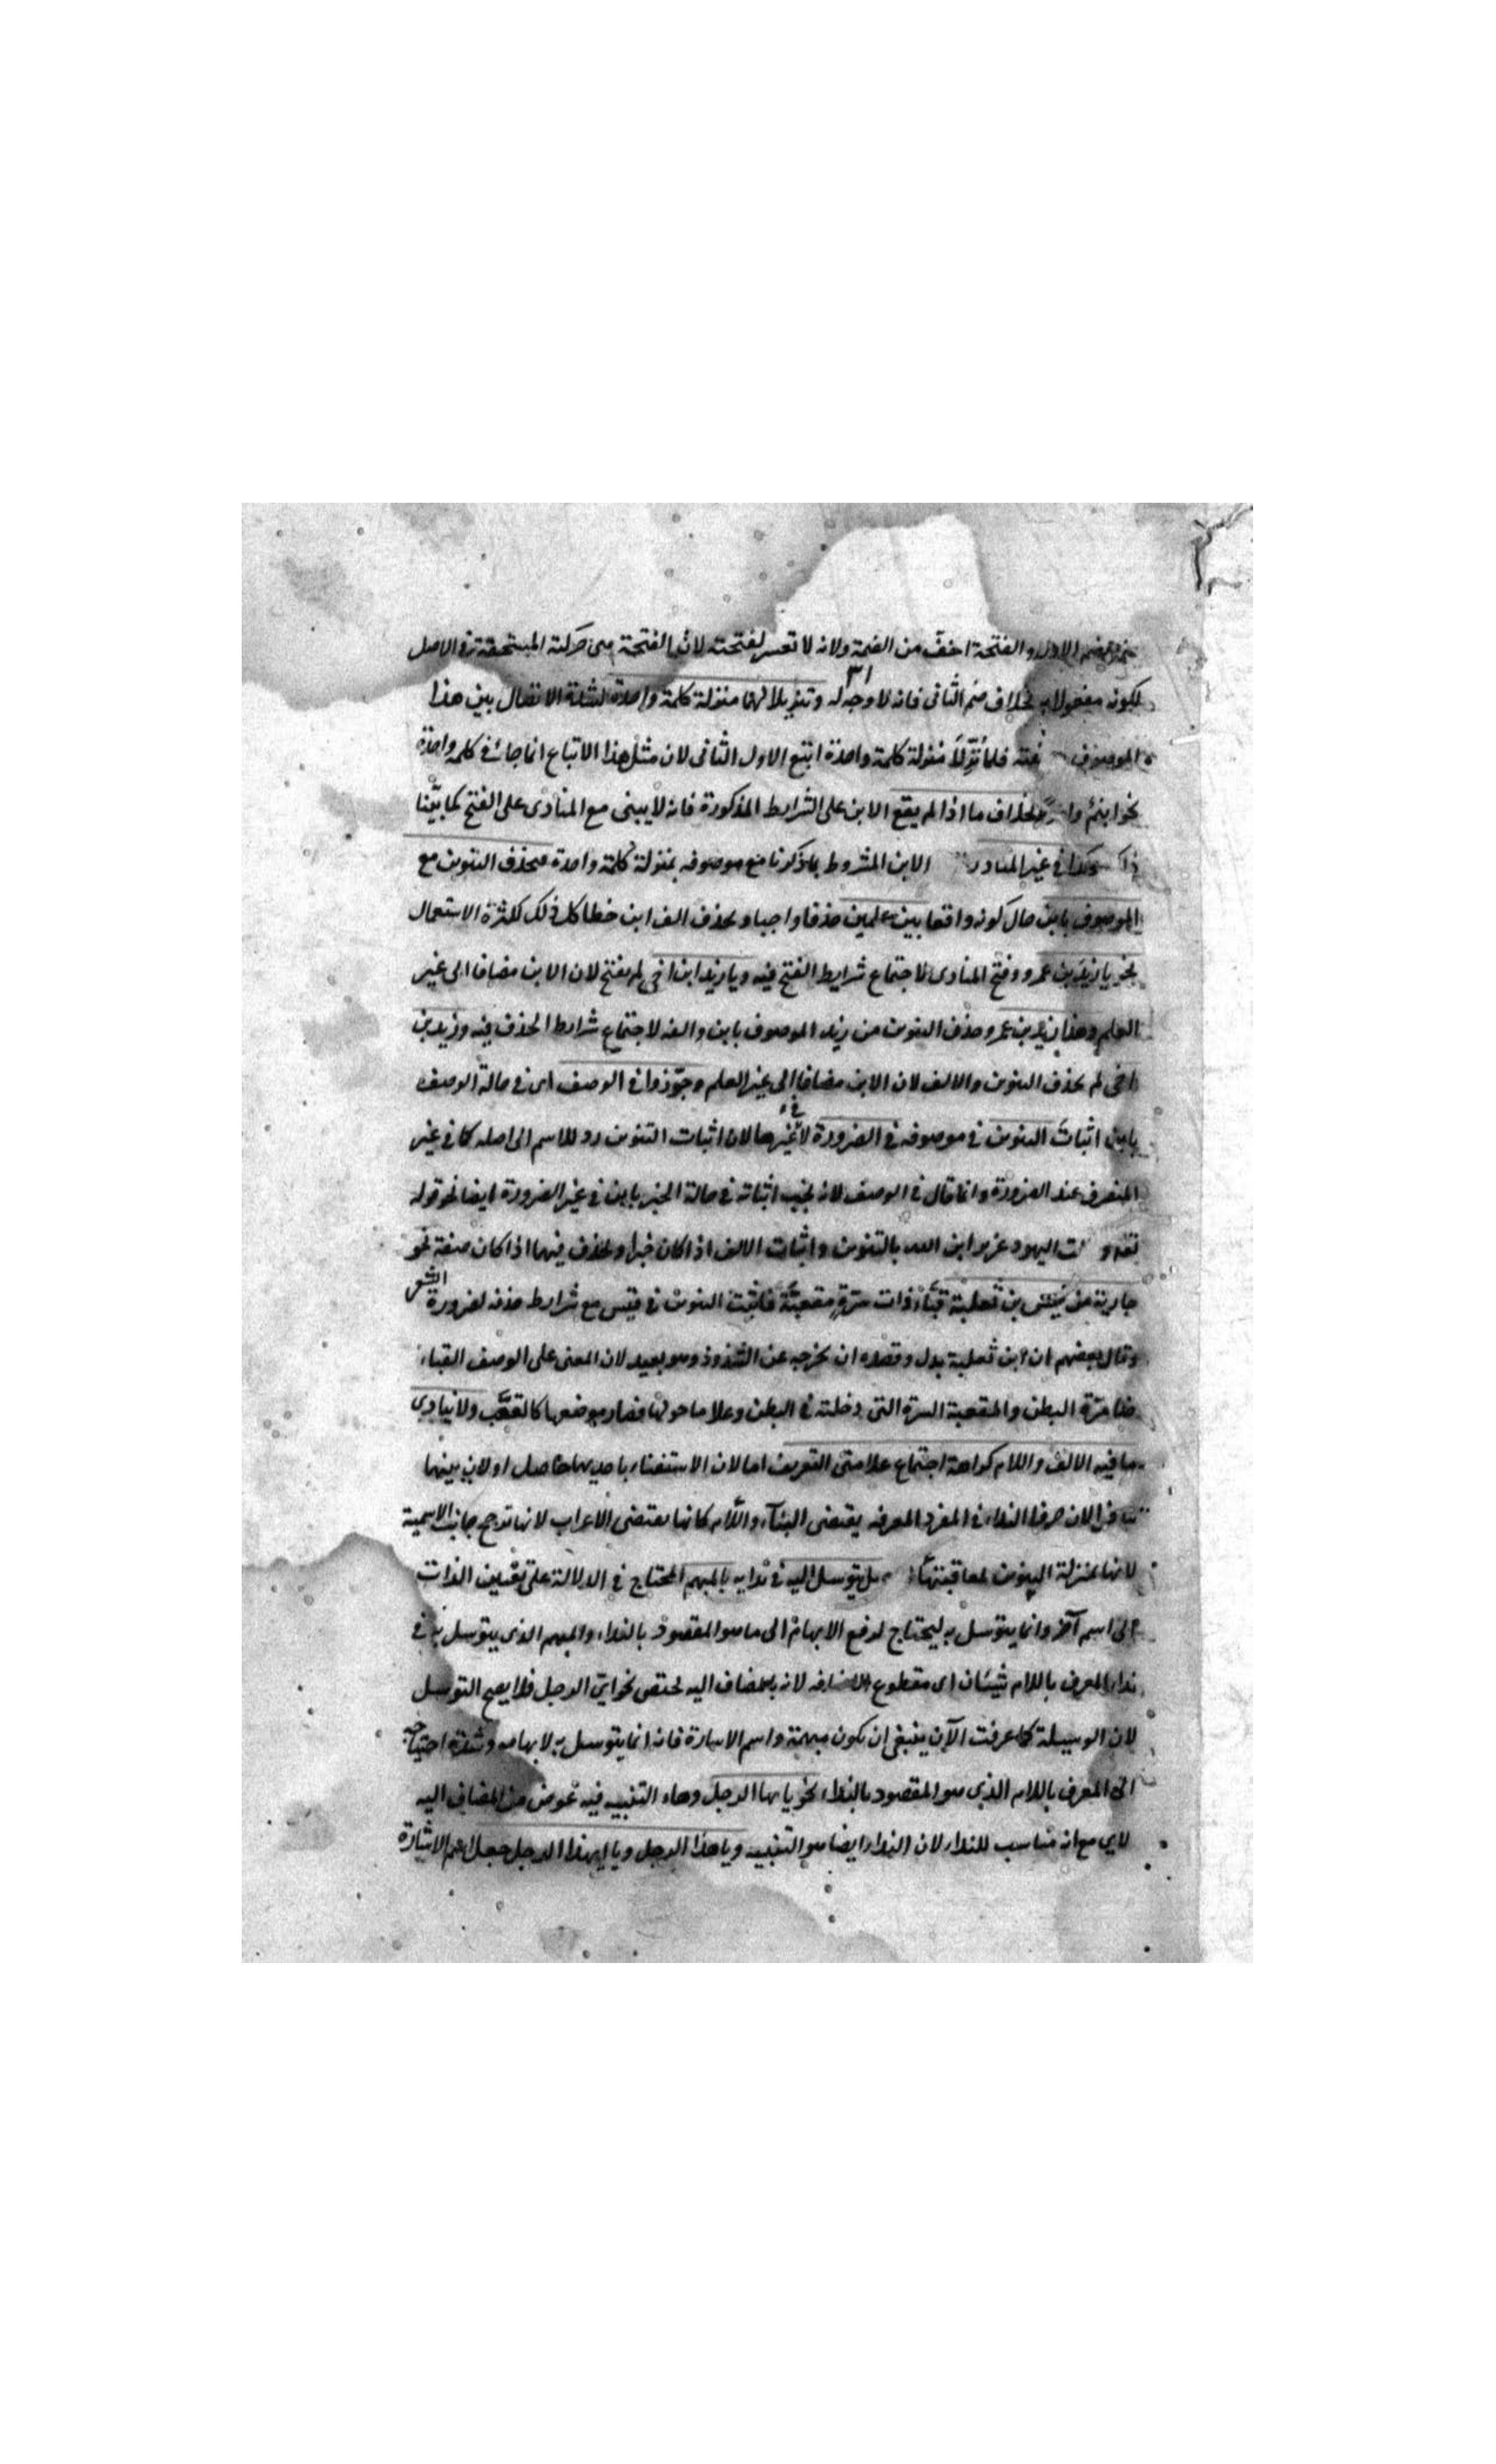 ضم الاول والفتحة اخفّ من الضمة ولانه لا تعسر لفتحته لان الفتحة هى حركته المستحقة فى الاصل
لكونه مفعولا به بخلاف ضم الثانى فانه لا وجه له وتنزيلا لهما منزلة كلمة واحدة لشدة الاتصال بين هذا
الموصوف نعته فلما نُزّلا منزلة كلمة واحدة اتبع الاول الثانى لان مثل هذا الاتباع انما جاء فى كلمة واحدة
نحو ابنمٌ بخلاف ما اذا لم يقع الابن على الشرايط المذكورة فانه لا يبنى مع المنادى على الفتح كما بيّنا
هكذا فى غير المنادى الابن المشروط بما ذكرنا مع موصوفه بمنزلة كلمة واحدة فحذف التنوين مع
الموصوف بابن حال كونه واقعا بين علمين حذفا واجبا وبحذف الف ابن خطا كل ذلك لكثرة الاستعمال
نحو يا زيدَ بن عمرو وفتح المنادى لاجتماع شرايط الفتح فيه ويا زيد ابن اخى لم يفتح لان الابن مضاف الى غير
العلم وهذا زيد بن عمرو حذف التنوين من زيد الموصوف بابن والفه لاجتماع شرايط الحذف فيه وزيد بن
اخى لم يحذف التنوين والالف لان الابن مضاف الى غير العلم وجوّزوا فى الوصف اى فى حالة الوصف
بابن اثباتَ التنوين فى موصوفه فى الضرورة لا فى غيرها لان اثبات التنوين رد للاسم الى اصله كما فى غير
المنصرف عند الضرورة وانما قال فى الوصف لانه يجب اثباته فى حالة الخبر بابن فى غير الضرورة ايضا نحو قوله
تعه و لت اليهود عزير ابن الله بالتنوين واثبات الالف اذا كان خبرا ويحذف فيهما اذا كان صفة نحو
جارية من قيس بن ثعلبة قبّاء ذات سرةٍ مقعبّة فاثبت التنوين فى قيس مع شرايط حذفه لضرورة الشعر
وقال بعضهم ان ابن ثعلبة بدل وقصده ان يخرجه عن الشذوذ وهو بعيد لان المعنى على الوصف القباء
ضامرة البطن والمقعبة السرة التى دخلت فى البطن وعلا ما حولها فصار موضعها كالقعْب ولا ينادى
ما فيه الالف واللام كراهة اجتماع علامتى التعريف اما لان الاستغناء باحديهما حاصل او لان بينهما
تنافرا لان حرف النداء فى المفرد المعرفه يقتضى البناء واللام كانها يقتضى الاعراب لانها ترجح جانب الاسمية
لانها بمنزلة التنوين لمعاقبتها بل يتوسل اليه فى ندايه بالمبهم المحتاج فى الدلالة على تعيين الذات
الى اسم آخر وانما يتوسل به ليحتاج لدفع الابهام الى ما هو المقصود بالنداء والمبهم الذى يتوسل به فى
نداء المعرف باللام شيئان اى مقطوع الاضافه لانه بالمضاف اليه يختص نحو اىّ الرجل فلا يصح التوسل
لان الوسيلة كما عرفت الآن ينبغى ان يكون مبهمة واسم الاشارة فانه انما يتوسل به لابهامه وشدة احتياجه
الى المعرف باللام الذى هو المقصود بالنداء نحو يا يها الرجل وهاء التنبيه فيه عوض من المضاف اليه
لاى مع انه مناسب للنداء لان النداء ايضا هو التنبيه ويا هذا الرجل ويا ايهذا الرجل جعل اسم الاشارة